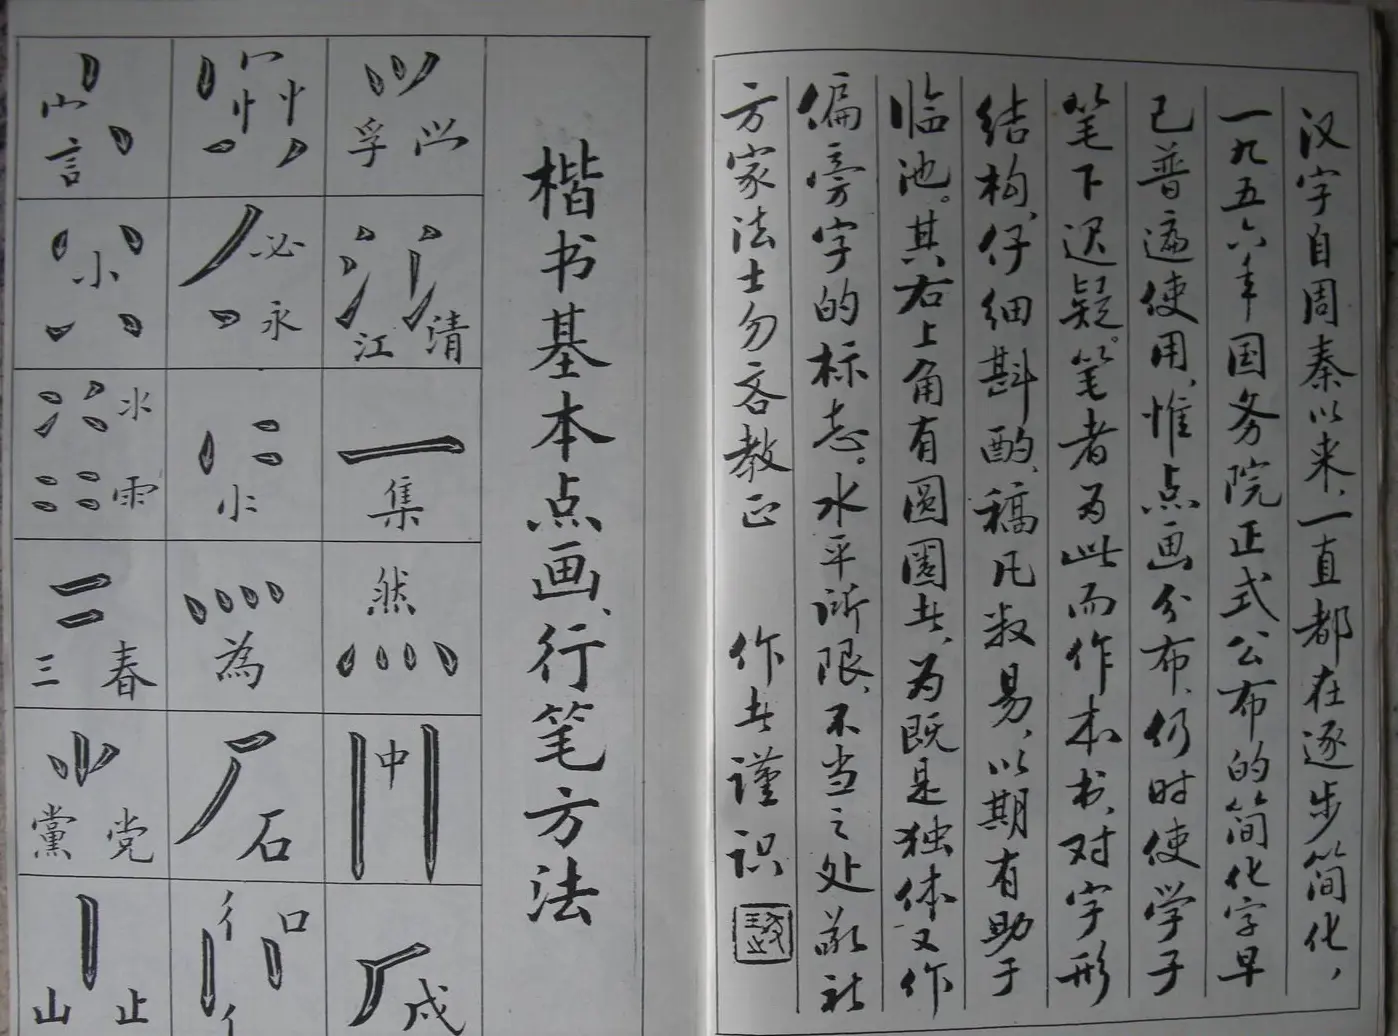 汉字自周秦以来,一直都在逐步简化,
一九五六年国务院正式公布的简化字早
已普遍使用,惟点画分布,仍时使学子
笔下迟疑。笔者为此而作本书,对字形
结构,仔细斟酌,稿凡数易,以期有助于
临池。其右上角有圆圈者,为既是独体又作
偏旁字的标志。水平所限,不当之处敬祈
方家法士勿吝教正 作者谨识
楷书基本点画、行笔方法
孚
江 清
集
然
中
成
冖 忄
必 永
为
石
彳 口 亻
宀 言
小
氺 雨
三 春
黨 党
山 止